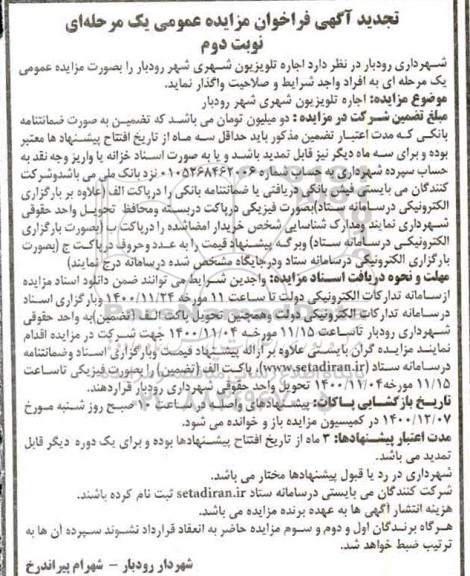 تجدید آگهی فراخوان مزایده عمومی یک مرحله‌ای
نوبت دوم
شهرداری رودبار در نظر دارد اجاره تلویزیون شهری شهر رودبار را بصورت مزایده عمومی
یک مرحله ای به افراد واجد شرایط و صلاحیت واگذار نماید.
موضوع مزایده: اجاره تلویزیون شهری شهر رودبار
مبلغ تضمین شرکت در مزایده : دو میلیون تومان می باشد که تضمین به صورت ضمانتنامه
بانکی که مدت اعتبار تضمین مذکور باید حداقل سه ماه از تاریخ افتتاح پیشنهاد ها معتبر
بوده و برای سه ماه دیگر نیز قابل تمدید باشد و یا به صورت اسناد خزانه یا واریز وجه نقد به
حساب سپرده شهرداری به حساب شماره ۰۱۰۵۲۶۸۴۶۲۰۰۶ نزد بانک ملی می باشدوشرکت
کنندگان می بایستی فیش بانکی دریافتی یا ضمانتنامه بانکی را درپاکت الف (علاوه بر بارگزاری
الکترونیکی درسامانه ستاد)بصورت فیزیکی درپاکت دربسته ومحافظ تحویل واحد حقوقی
شهرداری نمایند ومدارک شناسایی شخص خریدار امضاشده را درپاکت ب (بصورت بارگزاری
الکترونیکی درسامانه ستاد) وبرگه پیشنهاد قیمت را به عدد وحروف درپاکت ج (بصورت
بارگزاری الکترونیکی درسامانه ستاد ودرجایگاه مشخص شده درسامانه درج نمایند)
مهلت و نحوه دریافت اسناد مزایده: واجدین شرایط می توانند ضمن دانلود اسناد مزایده
ازسامانه تدارکات الکترونیکی دولت تا ساعت ۱۱ مورخه ۱۴۰۰/۱۱/۲۴ وبارگزاری اسناد
درسامانه تدارکات الکترونیکی دولت وهمچنین تحویل پاکت الف (تضمین)به واحد حقوقی
شهرداری رودبار تاساعت ۱۱/۱۵ مورخه ۱۴۰۰/۱۱/۰۴ جهت شرکت در مزایده اقدام
نمایند مزایده گران بایستی علاوه بر ارائه پیشنهاد قیمت وبارگزاری اسناد وضمانتنامه
درسامانه ستاد (www.setadiran.ir)، پاکت الف (تضمین) را بصورت فیزیکی تاساعت
۱۱/۱۵ مورخه ۱۴۰۰/۱۱/۰۴ تحویل واحد حقوقی شهرداری رودبار قراردهند.
تاریخ بازگشایی پاکات: پیشنهادهای واصله در ساعت ۱۰ صبح روز شنبه مورخ
۱۴۰۰/۱۲/۰۷ در کمیسیون مزایده باز و خوانده می شود.
مدت اعتبار پیشنهادها: ۳ ماه از تاریخ افتتاح پیشنهادها بوده و برای یک دوره دیگر قابل
تمدید می باشد.
شهرداری در رد یا قبول پیشنهادها مختار می باشد.
شرکت کنندگان می بایستی درسامانه ستاد setadiran.ir ثبت نام کرده باشند.
هزینه انتشار آگهی ها به عهده برنده مزایده می باشد.
هرگاه برندگان اول و دوم و سوم مزایده حاضر به انعقاد قرارداد نشوند سپرده آن ها به
ترتیب ضبط خواهد شد.
شهردار رودبار - شهرام پیراندرخ